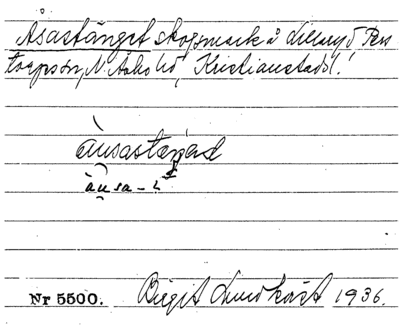 Åsastänget skogsmark å Lillaryd Pers
torps sn, N. Åsbo hd, Kristianstads l.
åusastaŋəd
åusa-
Nr 5500. Birgit Lundkvist 1936.